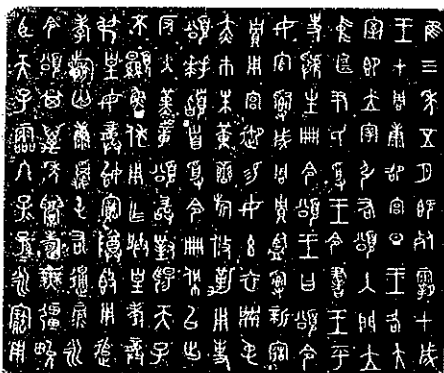 隹三年五月既死霸甲戌
王才周康卲宮旦王各大
室即立宰引右頌入門立
中廷尹氏受王令書王乎
史虢生冊令頌王曰頌令
女官𤔲成周貯監𤔲新造
貯用宮御易女玄衣黹屯
赤巿朱黃䜌旂攸勒用事
頌拜𩒨首受令冊佩以出
反入堇章頌敢對揚天子
不顯魯休用乍朕皇考龔
弔皇母龔始寶尊鼎用追
孝祈匄康𩁹屯右通彔永
令頌其萬年眉壽無疆畯
臣天子霝冬子孫永寶用